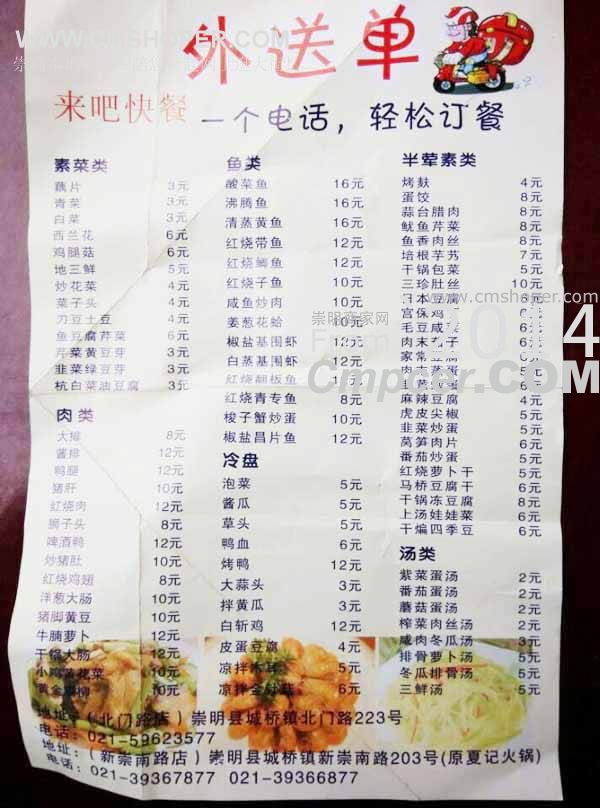 WWW.CMSHOPER.COM
外送单
来吧快餐
一个电话，轻松订餐
素菜类
藕片 3元
青菜 3元
白菜 3元
西兰花 6元
鸡腿菇 6元
地三鲜 5元
炒花菜 4元
菜子头 4元
刀豆土豆 4元
鱼豆腐芹菜 6元
芹菜黄豆芽 3元
韭菜绿豆芽 3元
杭白菜油豆腐 3元
肉类
大排 8元
酱排 12元
鸭腿 12元
猪肝 10元
红烧肉 12元
狮子头 8元
啤酒鸭 12元
炒猪肚 10元
红烧鸡翅 8元
洋葱大肠 10元
猪脚黄豆 10元
牛腩萝卜 12元
干锅大肠 12元
10元
10元
鱼类
酸菜鱼 16元
沸腾鱼 16元
清蒸黄鱼 16元
红烧带鱼 12元
红烧鲫鱼 12元
红烧子鱼 10元
咸鱼炒肉 10元
姜葱花蛤 10元
椒盐基围虾 12元
白蒸基围虾 12元
红烧翻板鱼 10元
红烧青专鱼 8元
梭子蟹炒蛋 10元
椒盐昌片鱼 12元
冷盘
泡菜 5元
酱瓜 5元
草头 5元
鸭血 6元
烤鸭 12元
大蒜头 3元
拌黄瓜 3元
白斩鸡 12元
皮蛋豆腐 4元
凉拌木耳 5元
凉拌金针菇 6元
半荤素类
烤麸 4元
蛋饺 8元
蒜台腊肉 8元
鱿鱼芹菜 8元
鱼香肉丝 8元
培根芋艿 7元
干锅包菜 5元
三珍肚丝 10元
日本豆腐
宫保鸡丁
毛豆咸菜
肉末茄子
家常豆腐
肉末蒸蛋 5元
6元
麻辣豆腐 4元
虎皮尖椒 5元
韭菜炒蛋 5元
莴笋肉片 6元
番茄炒蛋 5元
红烧萝卜干 5元
马桥豆腐干 6元
干锅冻豆腐 8元
上汤娃娃菜 6元
干煸四季豆 6元
汤类
紫菜蛋汤 2元
番茄蛋汤 2元
蘑菇蛋汤 2元
榨菜肉丝汤 2元
咸肉冬瓜汤 3元
排骨萝卜汤 5元
冬瓜排骨汤 5元
三鲜汤 5元
www.cmshoper.com
崇明商家网
From
Cmpcer.COM
地址：（北门路店）崇明县城桥镇北门路223号
电话：021-59623577
地址：（新崇南路店）崇明县城桥镇新崇南路203号(原夏记火锅)
电话：021-39367877 021-39366877